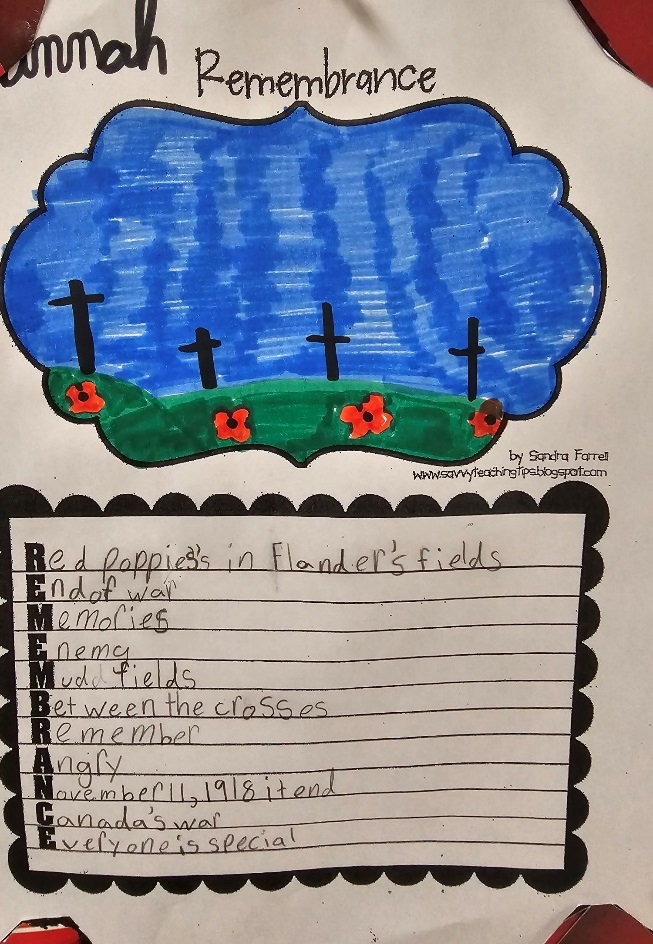 annah
Remembrance
by Sandra Farrell
www.savvyteachingtips.blogspot.com
Red poppies's in Flander's fields
End of war
Memories
Enemy
Mudd fields
Between the crosses
Remember
Angry
November 11, 1918 it end
Canada's war
Everyone is special